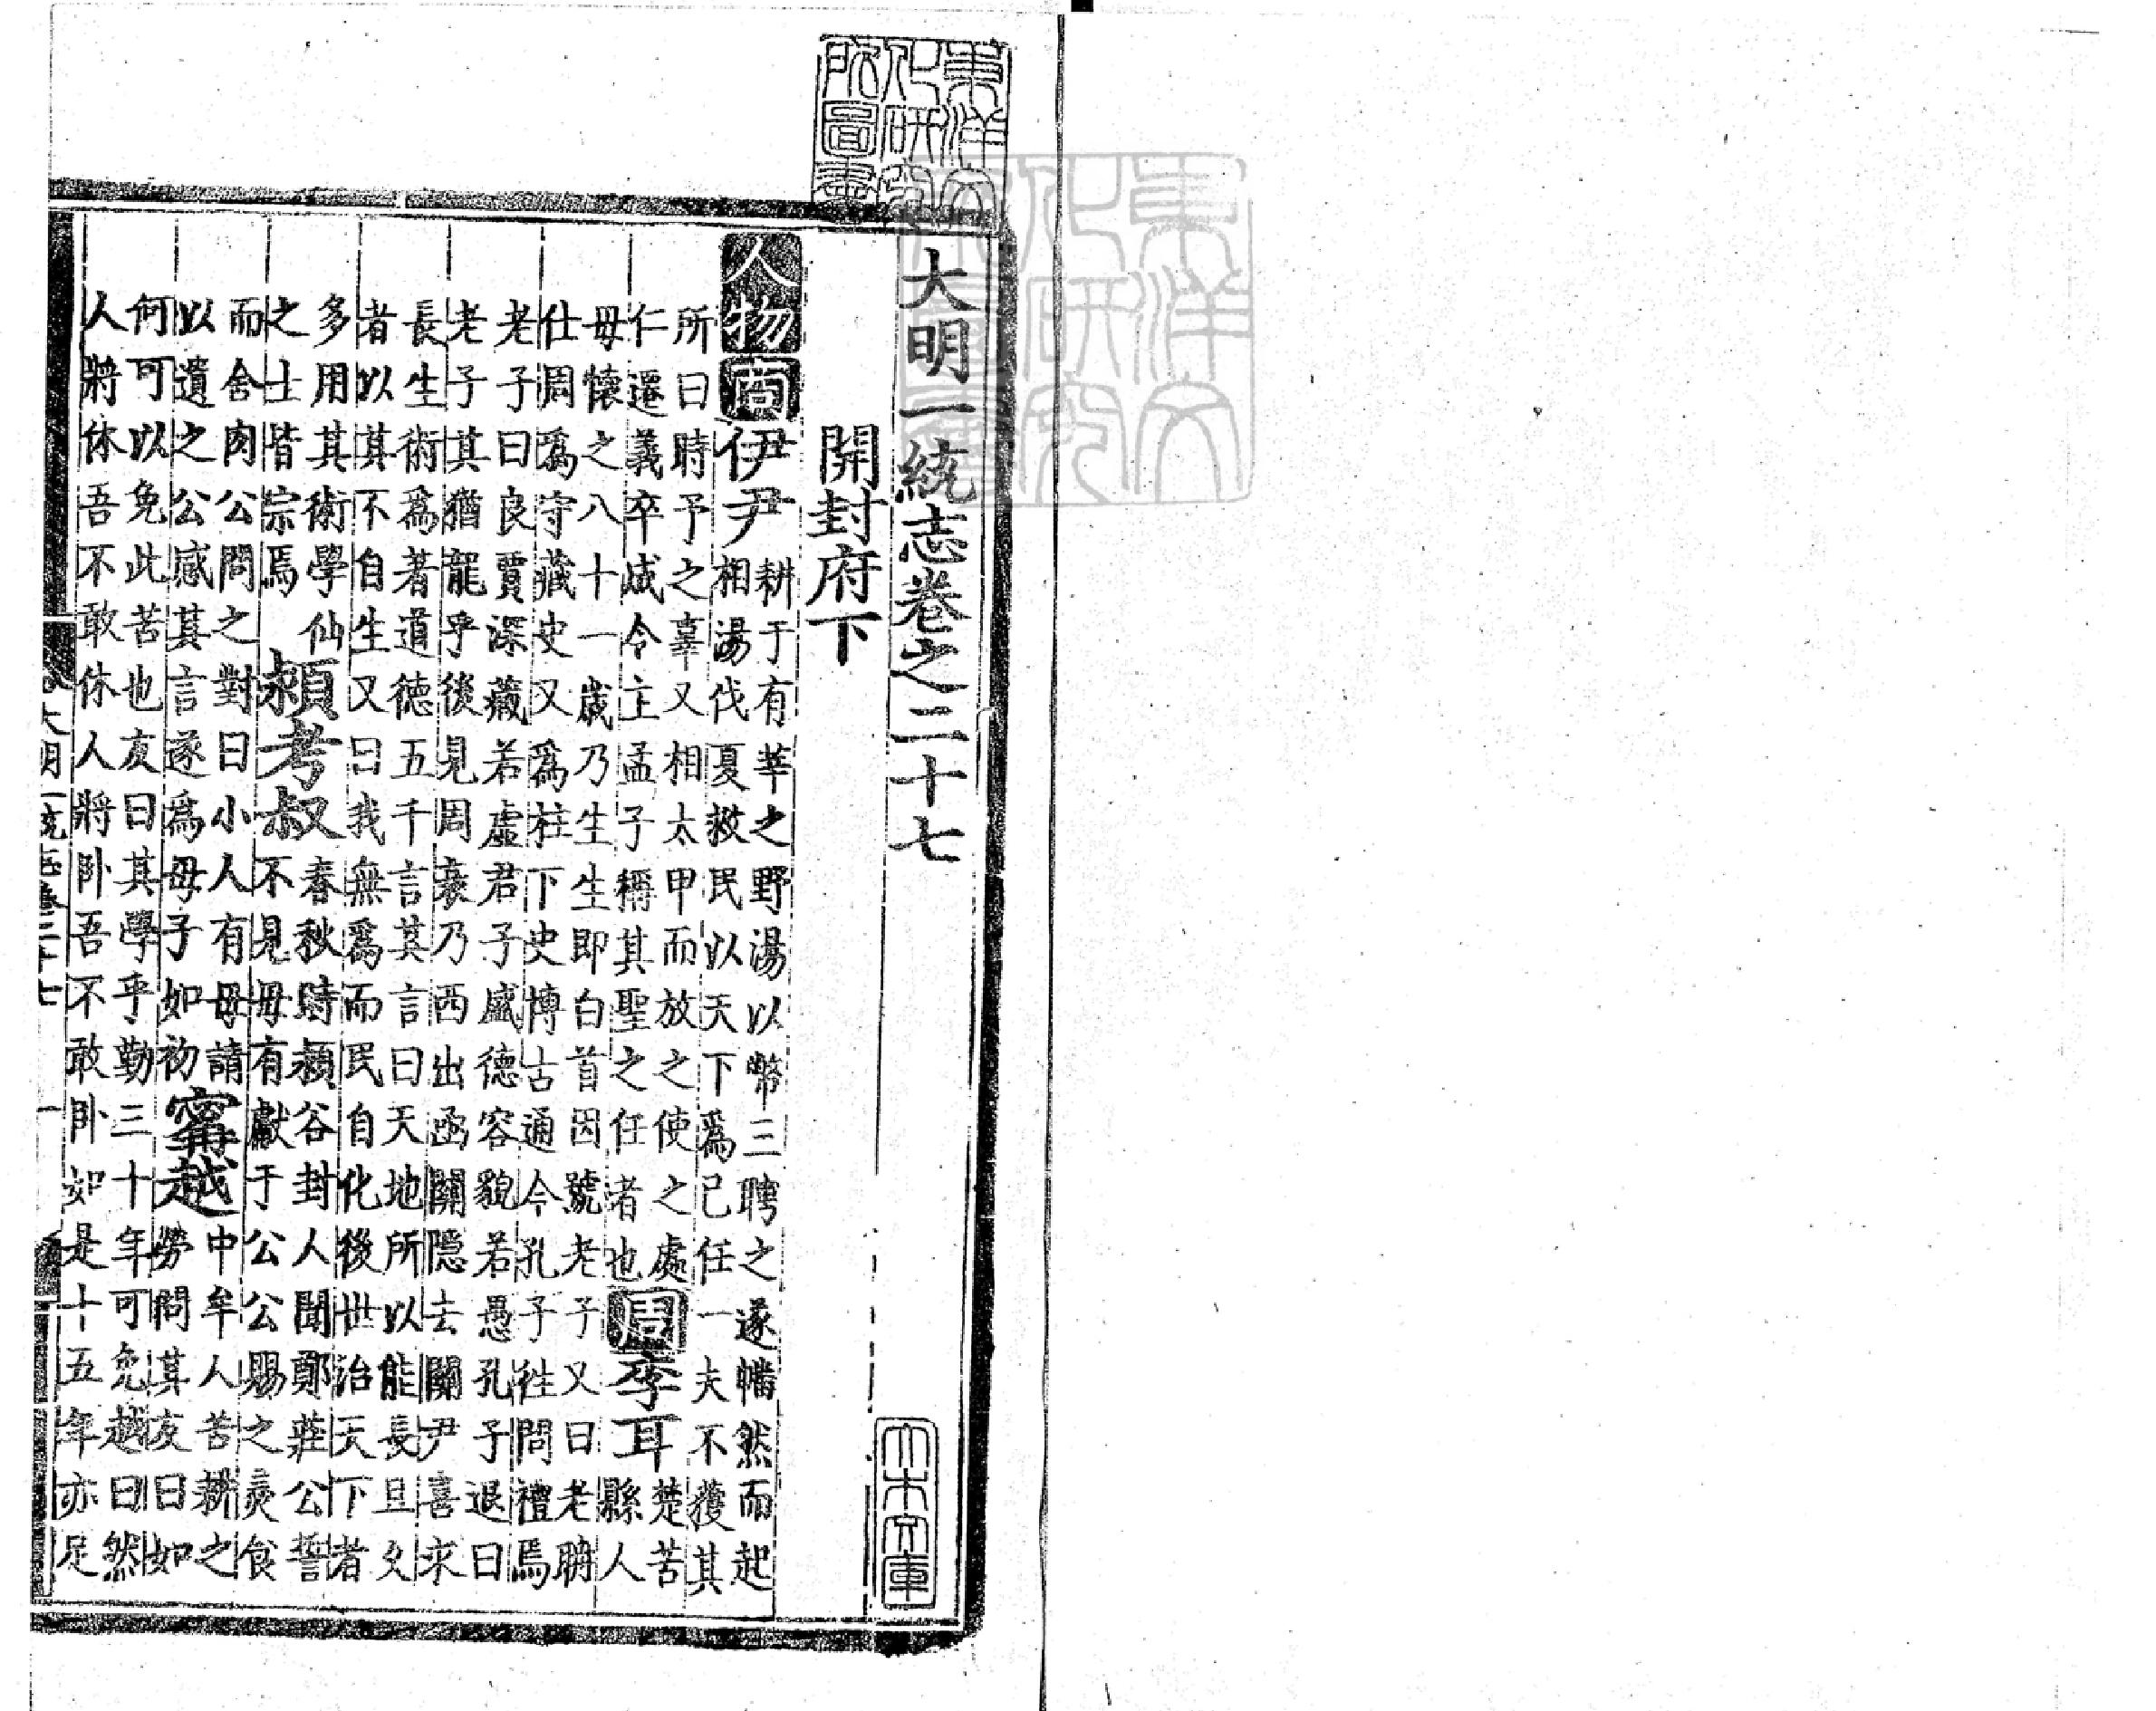 東洋文
化研究
所圖書
東洋文
化研究
所圖書
大明一統志卷之二十七
大木文庫
開封府下
人物 商 伊尹
耕于有莘之野湯以幣三聘之遂幡然而起
相湯伐夏救民以天下爲己任一夫不獲其
所曰時予之辜又相太甲而放之使之處
仁遷義卒成令主孟子稱其聖之任者也
周 李耳
楚苦
縣人
母懷之八十一歲乃生生即白首因號老子又曰老聃
仕周爲守藏史又爲柱下史博古通今孔子往問禮焉
老子曰良賈深藏若虛君子盛德容貌若愚孔子退曰
老子其猶龍乎後見周衰乃西出函關隱去關尹喜求
長生術爲著道德五千言其言曰天地所以能長且久
者以其不自生又曰我無爲而民自化後世治天下者
多用其術學仙
之士皆宗焉
潁考叔
春秋時潁谷封人聞鄭莊公誓
不見母有獻于公公賜之羹食
而舍肉公問之對曰小人有母請
以遺之公感其言遂爲母子如初
甯越
中牟人苦耕之
勞問其友曰如
何可以免此苦也友曰其學乎勤三十年可免越曰然
人將休吾不敢休人將卧吾不敢卧如是十五年亦足
大明一統志卷二十七 一